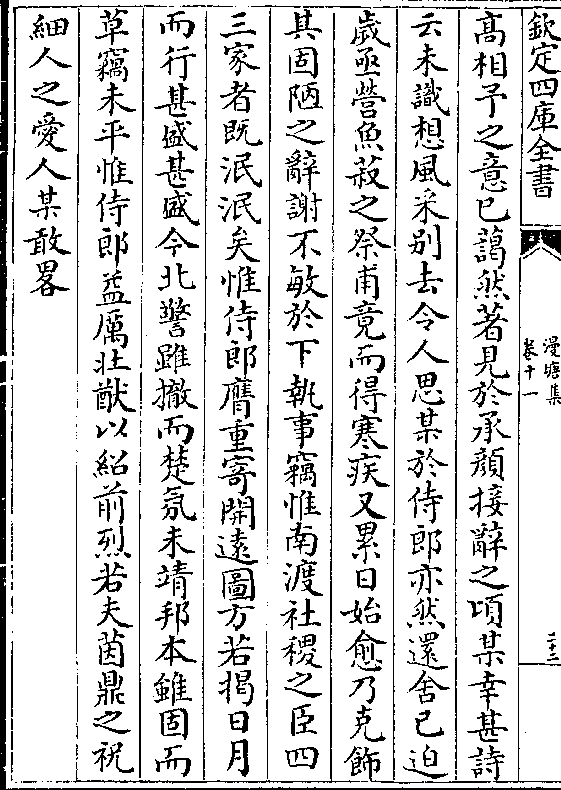 欽定四庫全書
漫塘集
卷十一
二十二
髙相予之意已藹然著見於承顔接辭之頃某幸甚詩
云未識想風采别去令人思某於侍郎亦然還舍已迫
歲亟營魚菽之祭甫竟而得寒疾又累日始愈乃克飾
其固陋之辭謝不敏於下執事竊惟南渡社稷之臣四
三家者既泯泯矣惟侍郎膺重寄開逺圖方若揭日月
而行甚盛甚盛今北警雖撤而楚氛未靖邦本雖固而
草竊未平惟侍郎益厲壯猷以紹前烈若夫茵鼎之祝
細人之愛人某敢畧